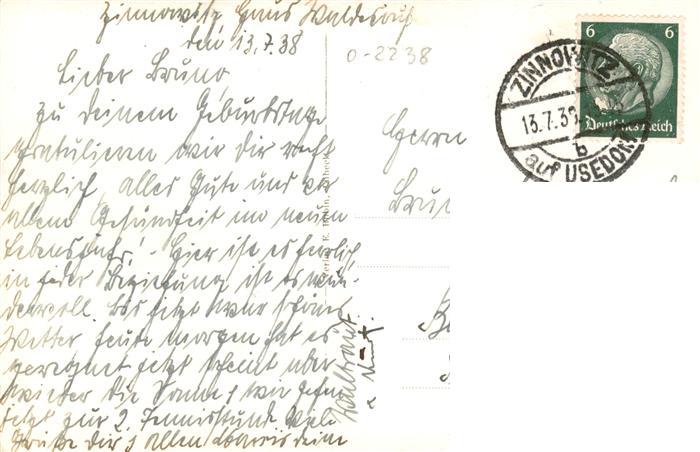 Zinnowitz Haus Waldesruh
den 13.7.38
Lieber Bruno,
Zu deinem Geburtstage
gratulieren wir Dir recht
herzlich, alles Gute und vor
allem Gesundheit im neuen
Lebensjahr! - Hier ist es herrlich
in jeder Beziehung ist es wun-
dervoll. Bis jetzt war schönes
Wetter heute morgen hat es
geregnet jetzt scheint aber
wieder die Sonne, wir gehen
jetzt zur 2. Tennisstunde. Viele
Grüße Dir, allen
Waltraut
0-2238
Herrn
Bru
6 6
Deutsches Reich
ZINNOWITZ
13.7.38
b
auf USEDOM